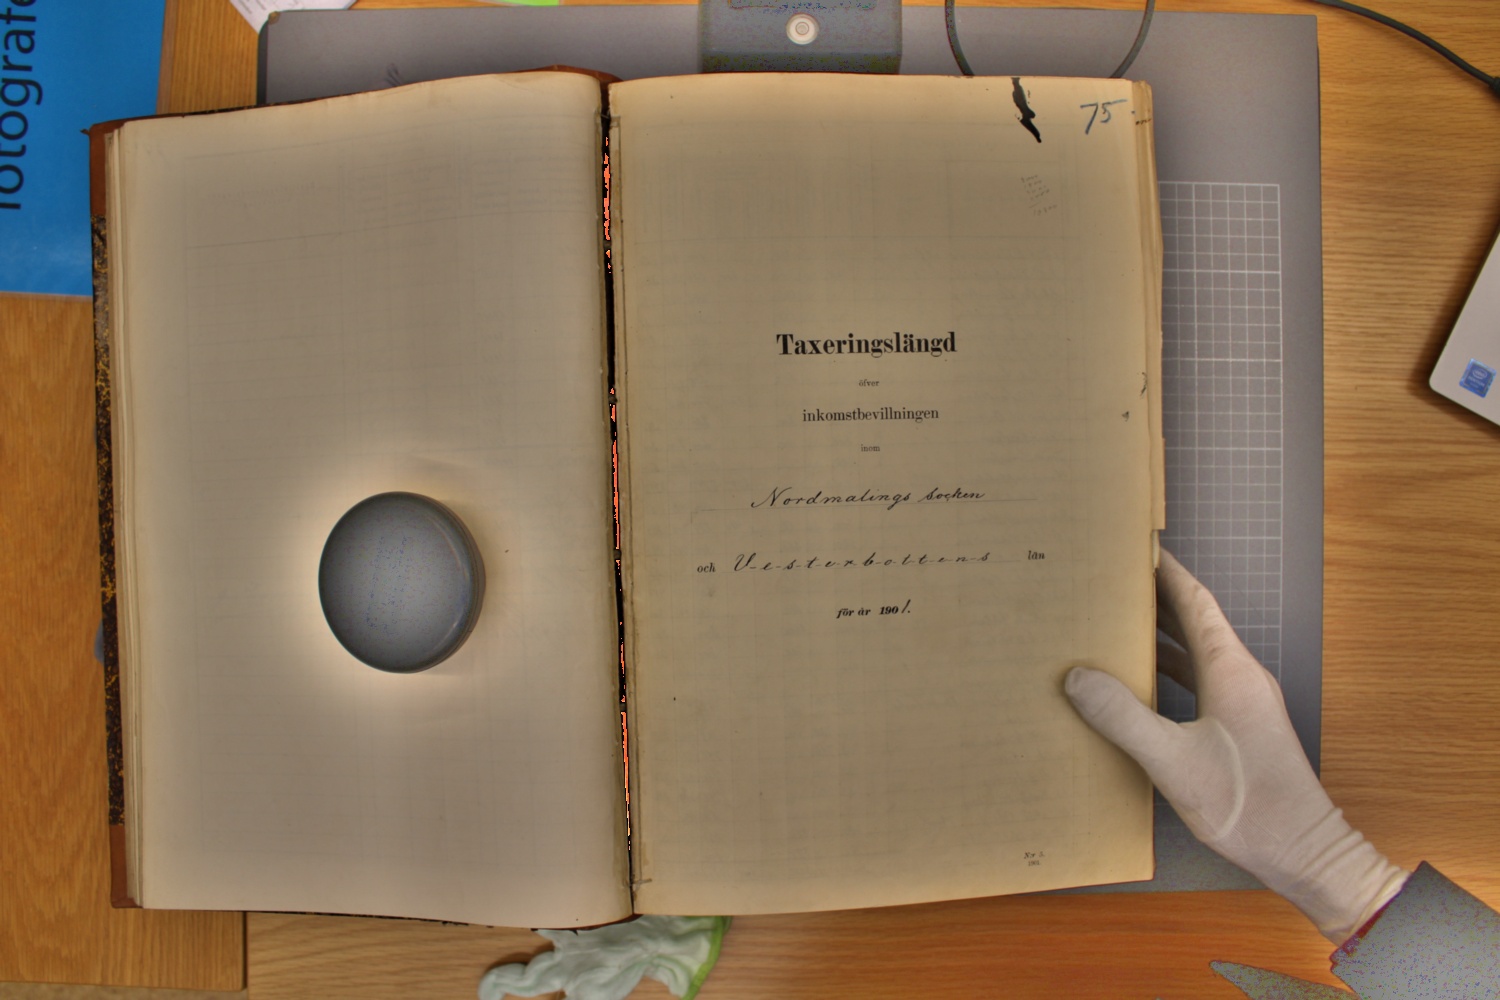 fotografe
75
Taxeringslängd
öfver
inkomstbevillningen
inom
Nordmalings Socken
och Vesterbottens län
för år 1901.
Nr 3.